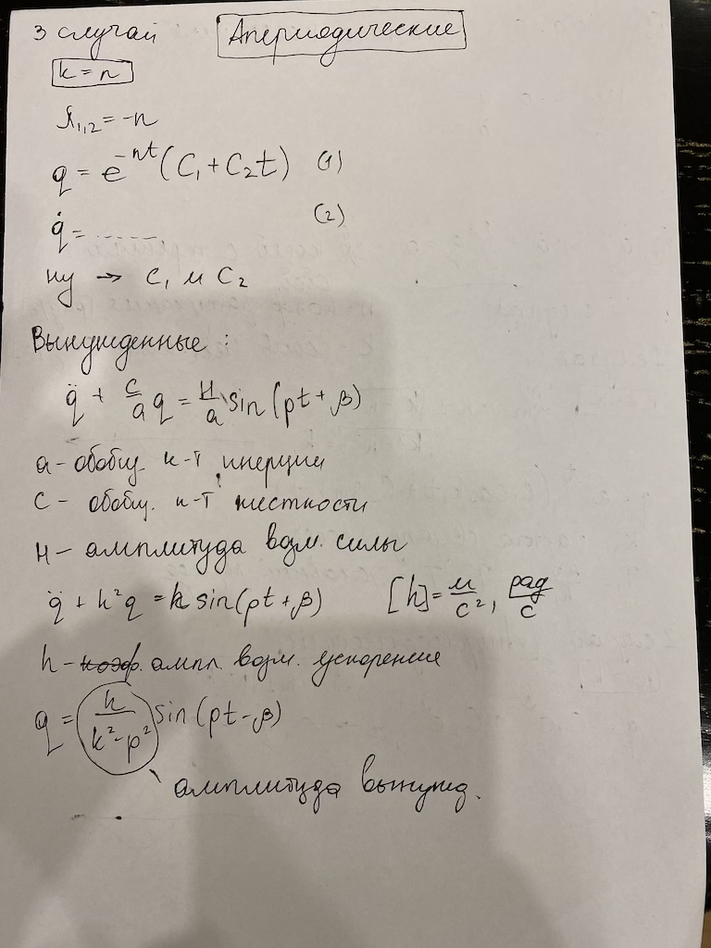 3 случай Апериодические
k = n
λ₁,₂ = -n
q = e^{-nt} (C₁ + C₂t) (1)
q̇ = ...... (2)
ну → C₁ и C₂
Вынужденные :
q̈ + c/a q = H/a sin (pt + β)
a - обобщ. к-т инерции
c - обобщ. к-т жесткости
H - амплитуда возм. силы
q̈ + k²q = h sin(pt + β) [h] = м/с², рад/с
h - ампл. возм. ускорение
q = h/(k² - p²) sin (pt - β)
амплитуда вынужд.